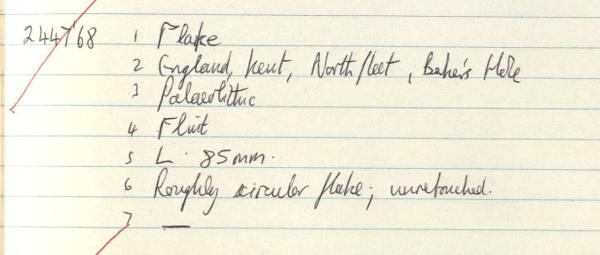 244'68 1 Flake
2 England, Kent, Northfleet, Baker's Hole
3 Palaeolithic
4 Flint
5 L. 85mm.
6 Roughly circular flake; unretouched.
7 —